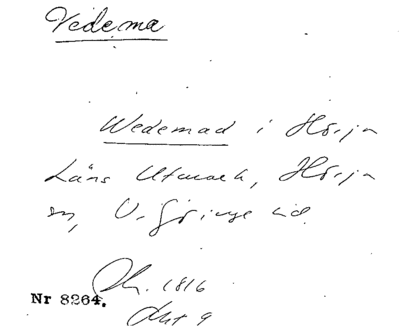 Vedema
Wedemad i Hörja
Läns Utmark, Hörja
sn, V. Göinge hd.
1816
Nr 8264.
Akt 9